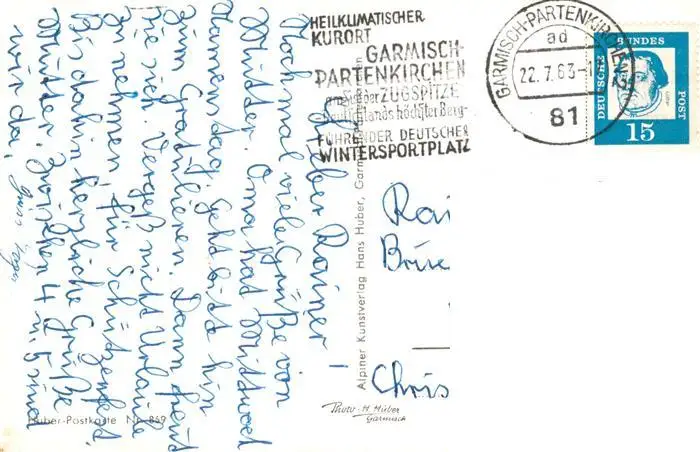 HEILKLIMATISCHER
KURORT
GARMISCH-
PARTENKIRCHEN
am Fuße der ZUGSPITZE
Deutschlands höchster Berg
FÜHRENDER DEUTSCHER
WINTERSPORTPLATZ
GARMISCH-PARTENKIRCHEN 2
ad
22.7.63-1
81
DEUTSCHE BUNDESPOST
15
Lieber Rainer!
Nochmal viele Grüße von
Mutter. Oma hat Mittwoch
Namenstag. Geht bitte hin
zum Gratulieren. Dann
Vergeß nicht Urlaub
zu nehmen für Schützenfest
Bis dahin herzliche Grüße
Mutter. Zwischen 4 u. 5 sind
wir da.
Gruß
Rai
Chris
Alpiner Kunstverlag Hans Huber, Garmisch-Partenkirchen
Huber-Postkarte Nr. 869
Photo-H. Huber
Garmisch